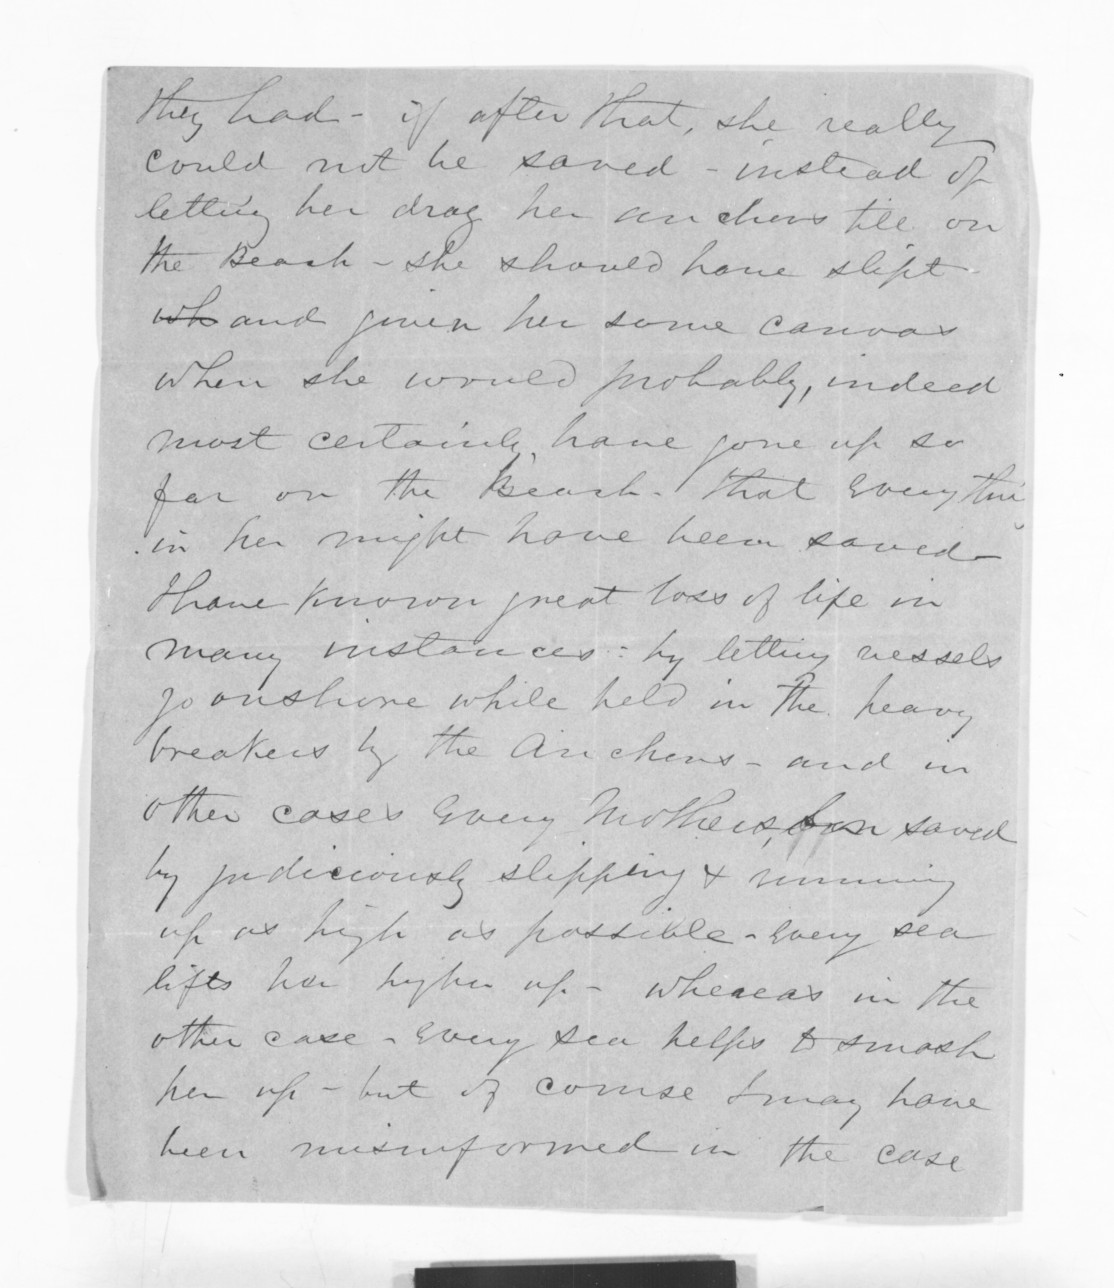 they had - if after that, she really
could not be saved - instead of
letting her drag her anchors till on
the Beach - she should have slipt
wh and given her some canvas
when she would probably, indeed
most certainly, have gone up so
far on the Beach - that every thing
in her might have been saved -
I have known great loss of life in
many instances: by letting vessels
go onshore while held in the heavy
breakers by the Anchors - and in
other cases Every Mothers, Son saved
by judiciously slipping & running
up as high as possible - Every sea
lifts her higher up - whereas in the
other case - Every sea helps to smash
her up - but of course I may have
been misinformed in the case